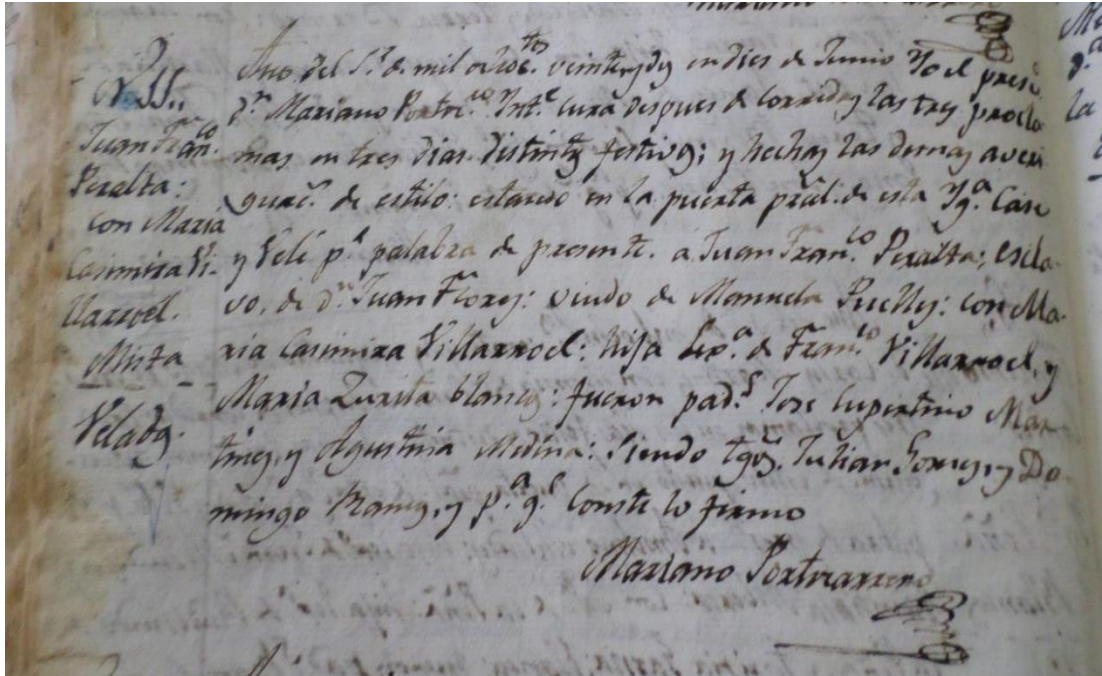 N. 11.,
Juan Fran.co
Peralta:
con Maria
Casimira Vi-
llarroel.
Mista
Velados.
Año del S.r de mil ochoc.tos veintey dos en dies de Junio Yo el presb.o
D.n Mariano Portoc.ro Int.e cura despues de corridas las tres procla
mas en tres dias distintos festivos; y hechas las demas averi
guac.s de estilo: estando en la puerta prãl. de esta Yg.a Case
y Velé p.r palabra de presente. a Juan Fran.co Peralta; escla-
vo, de d.n Juan Flores: viudo de Manuela Puelles: con Ma-
ria Casimira Villarroel: hija Lex.a de Fran.co Villarroel, y
Maria Zurita blancos: fueron pad.s Jose Cupertino Mar
tines, y Agustina Medina: Siendo tgos. Julian Gomes, y Do-
mingo Ramos, y p.a q.e conste lo firmo
Mariano Portocarrero